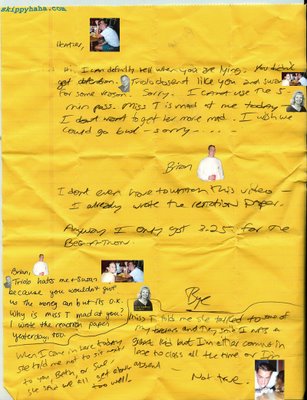 skippyhaha.com
Heather,
Hi, I can definitly tell when you are lying. You didn't
get detention. Triolo doesent like you and susan
for some reason. Sorry. I cannot use the 5-
min pass. Miss T is mad at me today
I dont want to get her more mad. I wish we
could go bud - sorry - . . . -
Brian
I dont even have to watch this video -
I already wrote the reaction paper.
Anyway I only got 3.25 for the
Beg-A-Thon.
Bye
Brian,
Triolo hates me + Susan
because you wouldn't give
us the money can but its O.K.
Why is miss T mad at you?
I wrote the reaction paper
yesterday, too.
When I came in here today
She told me not to sit next
to you, Beth, or Sue!
She said we all get along
too well!
Miss T told me she talked to some of
my teachers and they said I was a
great kid but I'm either coming in
late to class all the time or I'm
absent
- Not true.